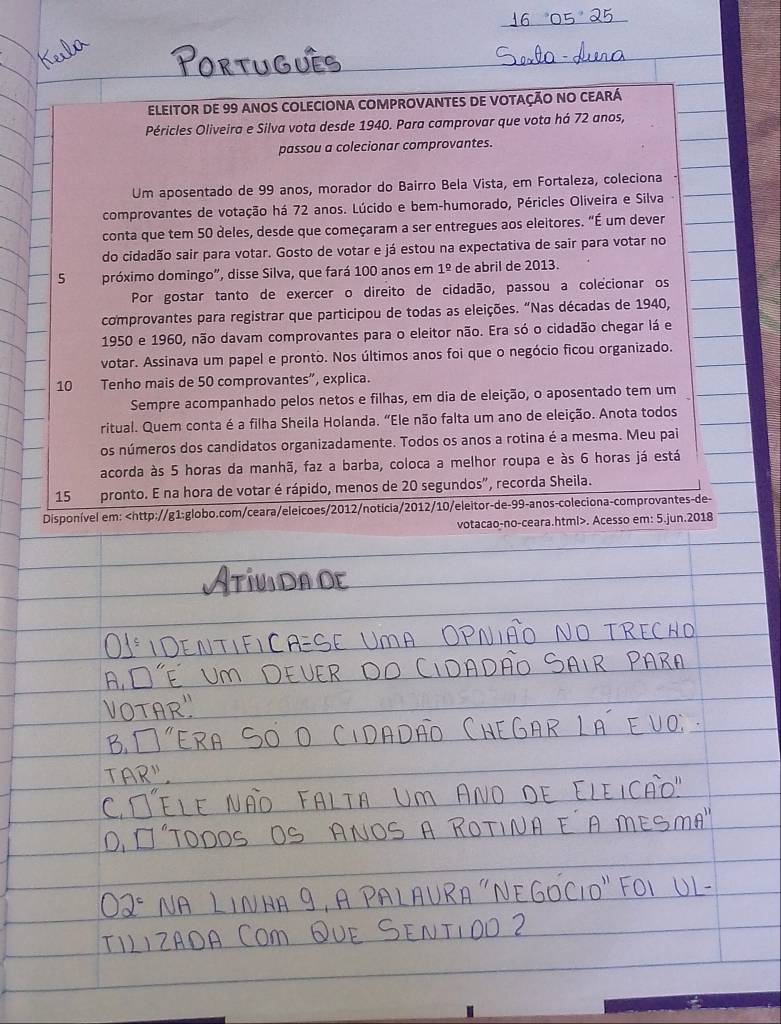 16 05 25
Keila
PORTUGUÊS
Sexta-feira
ELEITOR DE 99 ANOS COLECIONA COMPROVANTES DE VOTAÇÃO NO CEARÁ
Péricles Oliveira e Silva vota desde 1940. Para comprovar que vota há 72 anos,
passou a colecionar comprovantes.
Um aposentado de 99 anos, morador do Bairro Bela Vista, em Fortaleza, coleciona
comprovantes de votação há 72 anos. Lúcido e bem-humorado, Péricles Oliveira e Silva
conta que tem 50 deles, desde que começaram a ser entregues aos eleitores. "É um dever
do cidadão sair para votar. Gosto de votar e já estou na expectativa de sair para votar no
5 próximo domingo", disse Silva, que fará 100 anos em 1º de abril de 2013.
Por gostar tanto de exercer o direito de cidadão, passou a colecionar os
comprovantes para registrar que participou de todas as eleições. "Nas décadas de 1940,
1950 e 1960, não davam comprovantes para o eleitor não. Era só o cidadão chegar lá e
votar. Assinava um papel e pronto. Nos últimos anos foi que o negócio ficou organizado.
10 Tenho mais de 50 comprovantes", explica.
Sempre acompanhado pelos netos e filhas, em dia de eleição, o aposentado tem um
ritual. Quem conta é a filha Sheila Holanda. "Ele não falta um ano de eleição. Anota todos
os números dos candidatos organizadamente. Todos os anos a rotina é a mesma. Meu pai
acorda às 5 horas da manhã, faz a barba, coloca a melhor roupa e às 6 horas já está
15 pronto. E na hora de votar é rápido, menos de 20 segundos", recorda Sheila.
Disponível em: <http://g1:globo.com/ceara/eleicoes/2012/noticia/2012/10/eleitor-de-99-anos-coleciona-comprovantes-de-
votacao-no-ceara.html>. Acesso em: 5.jun.2018
ATIVIDADE
01º IDENTIFICA=SE UMA OPNIÃO NO TRECHO
A.☐ "É UM DEVER DO CIDADÃO SAIR PARA
VOTAR".
B.☐ "ERA SÓ O CIDADÃO CHEGAR LÁ E VO-
TAR".
C.☐ "ELE NÃO FALTA UM ANO DE ELEICÃO"
D.☐ "TODOS OS ANOS A ROTINA É A MESMA"
02º NA LINHA 9, A PALAVRA "NEGÓCIO" FOI UL-
TILIZADA COM QUE SENTIDO?